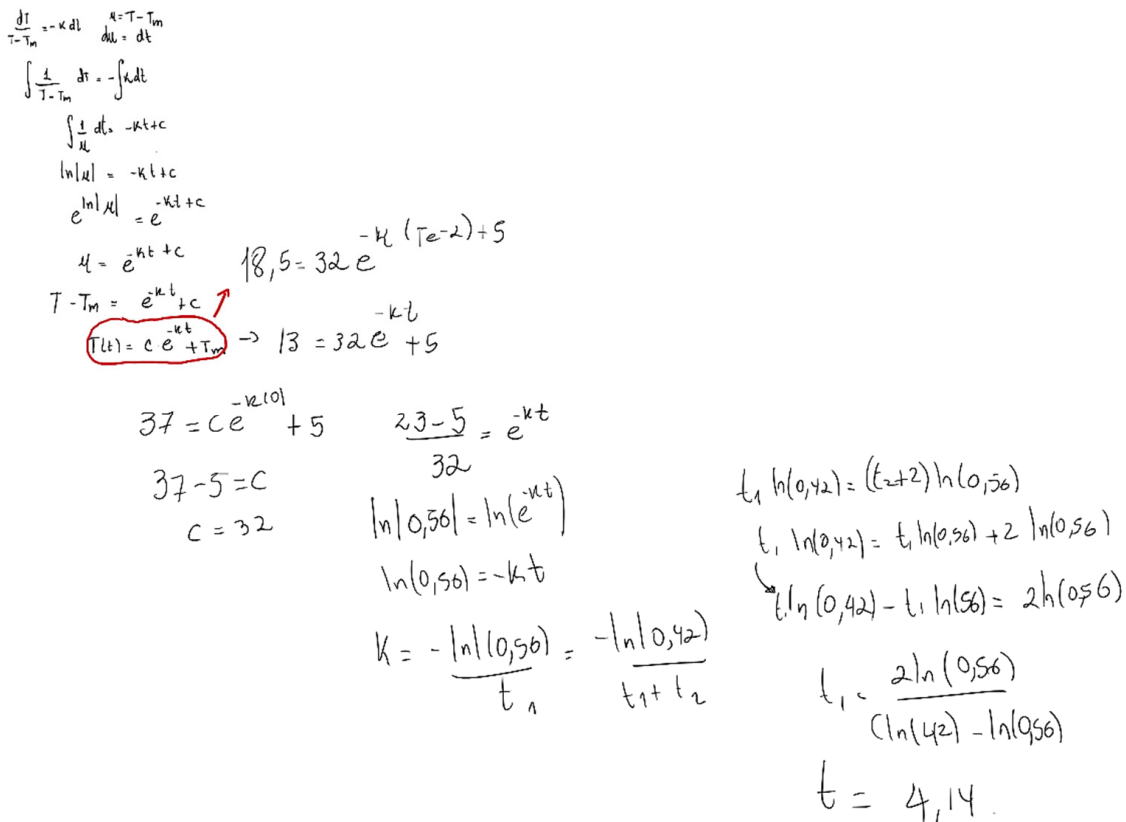 dT/(T-Tₘ) = -k dt   u = T-Tₘ
du = dt
∫ 1/(T-Tₘ) dT = -∫k dt
∫ 1/u dt = -kt+c
ln|u| = -kt+c
e^(ln|u|) = e^(-kt+c)
u = e^(-kt+c)
T-Tₘ = e^(-kt)+c
T(t) = c·e^(-kt)+Tₘ → 13 = 32e^(-kt)+5
18,5 = 32e^(-k(Te-2)+5)
37 = Ce^(-k(0)) + 5
37-5 = C
C = 32
(23-5)/32 = e^(-kt)
ln|0,56| = ln(e^(-kt))
ln(0,56) = -kt
K = -ln|(0,56)/t₁ = -ln|0,42)/(t₁+t₂)
t₁ ln(0,42) = (t₂+2)ln(0,56)
t₁ ln(0,42) = t₁ ln(0,56) + 2 ln(0,56)
t₁ ln(0,42) - t₁ ln(56) = 2ln(0,56)
t₁ = 2ln(0,56)/((ln(42) - ln(0,56)
t = 4,14.